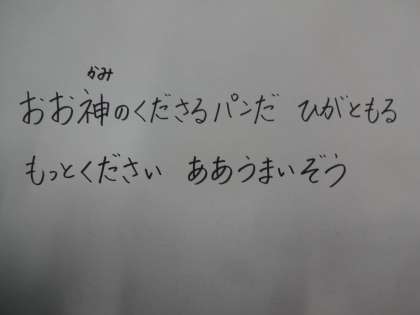 かみ
おお神のくださるパンだ ひがともる
もっとください ああうまいぞう